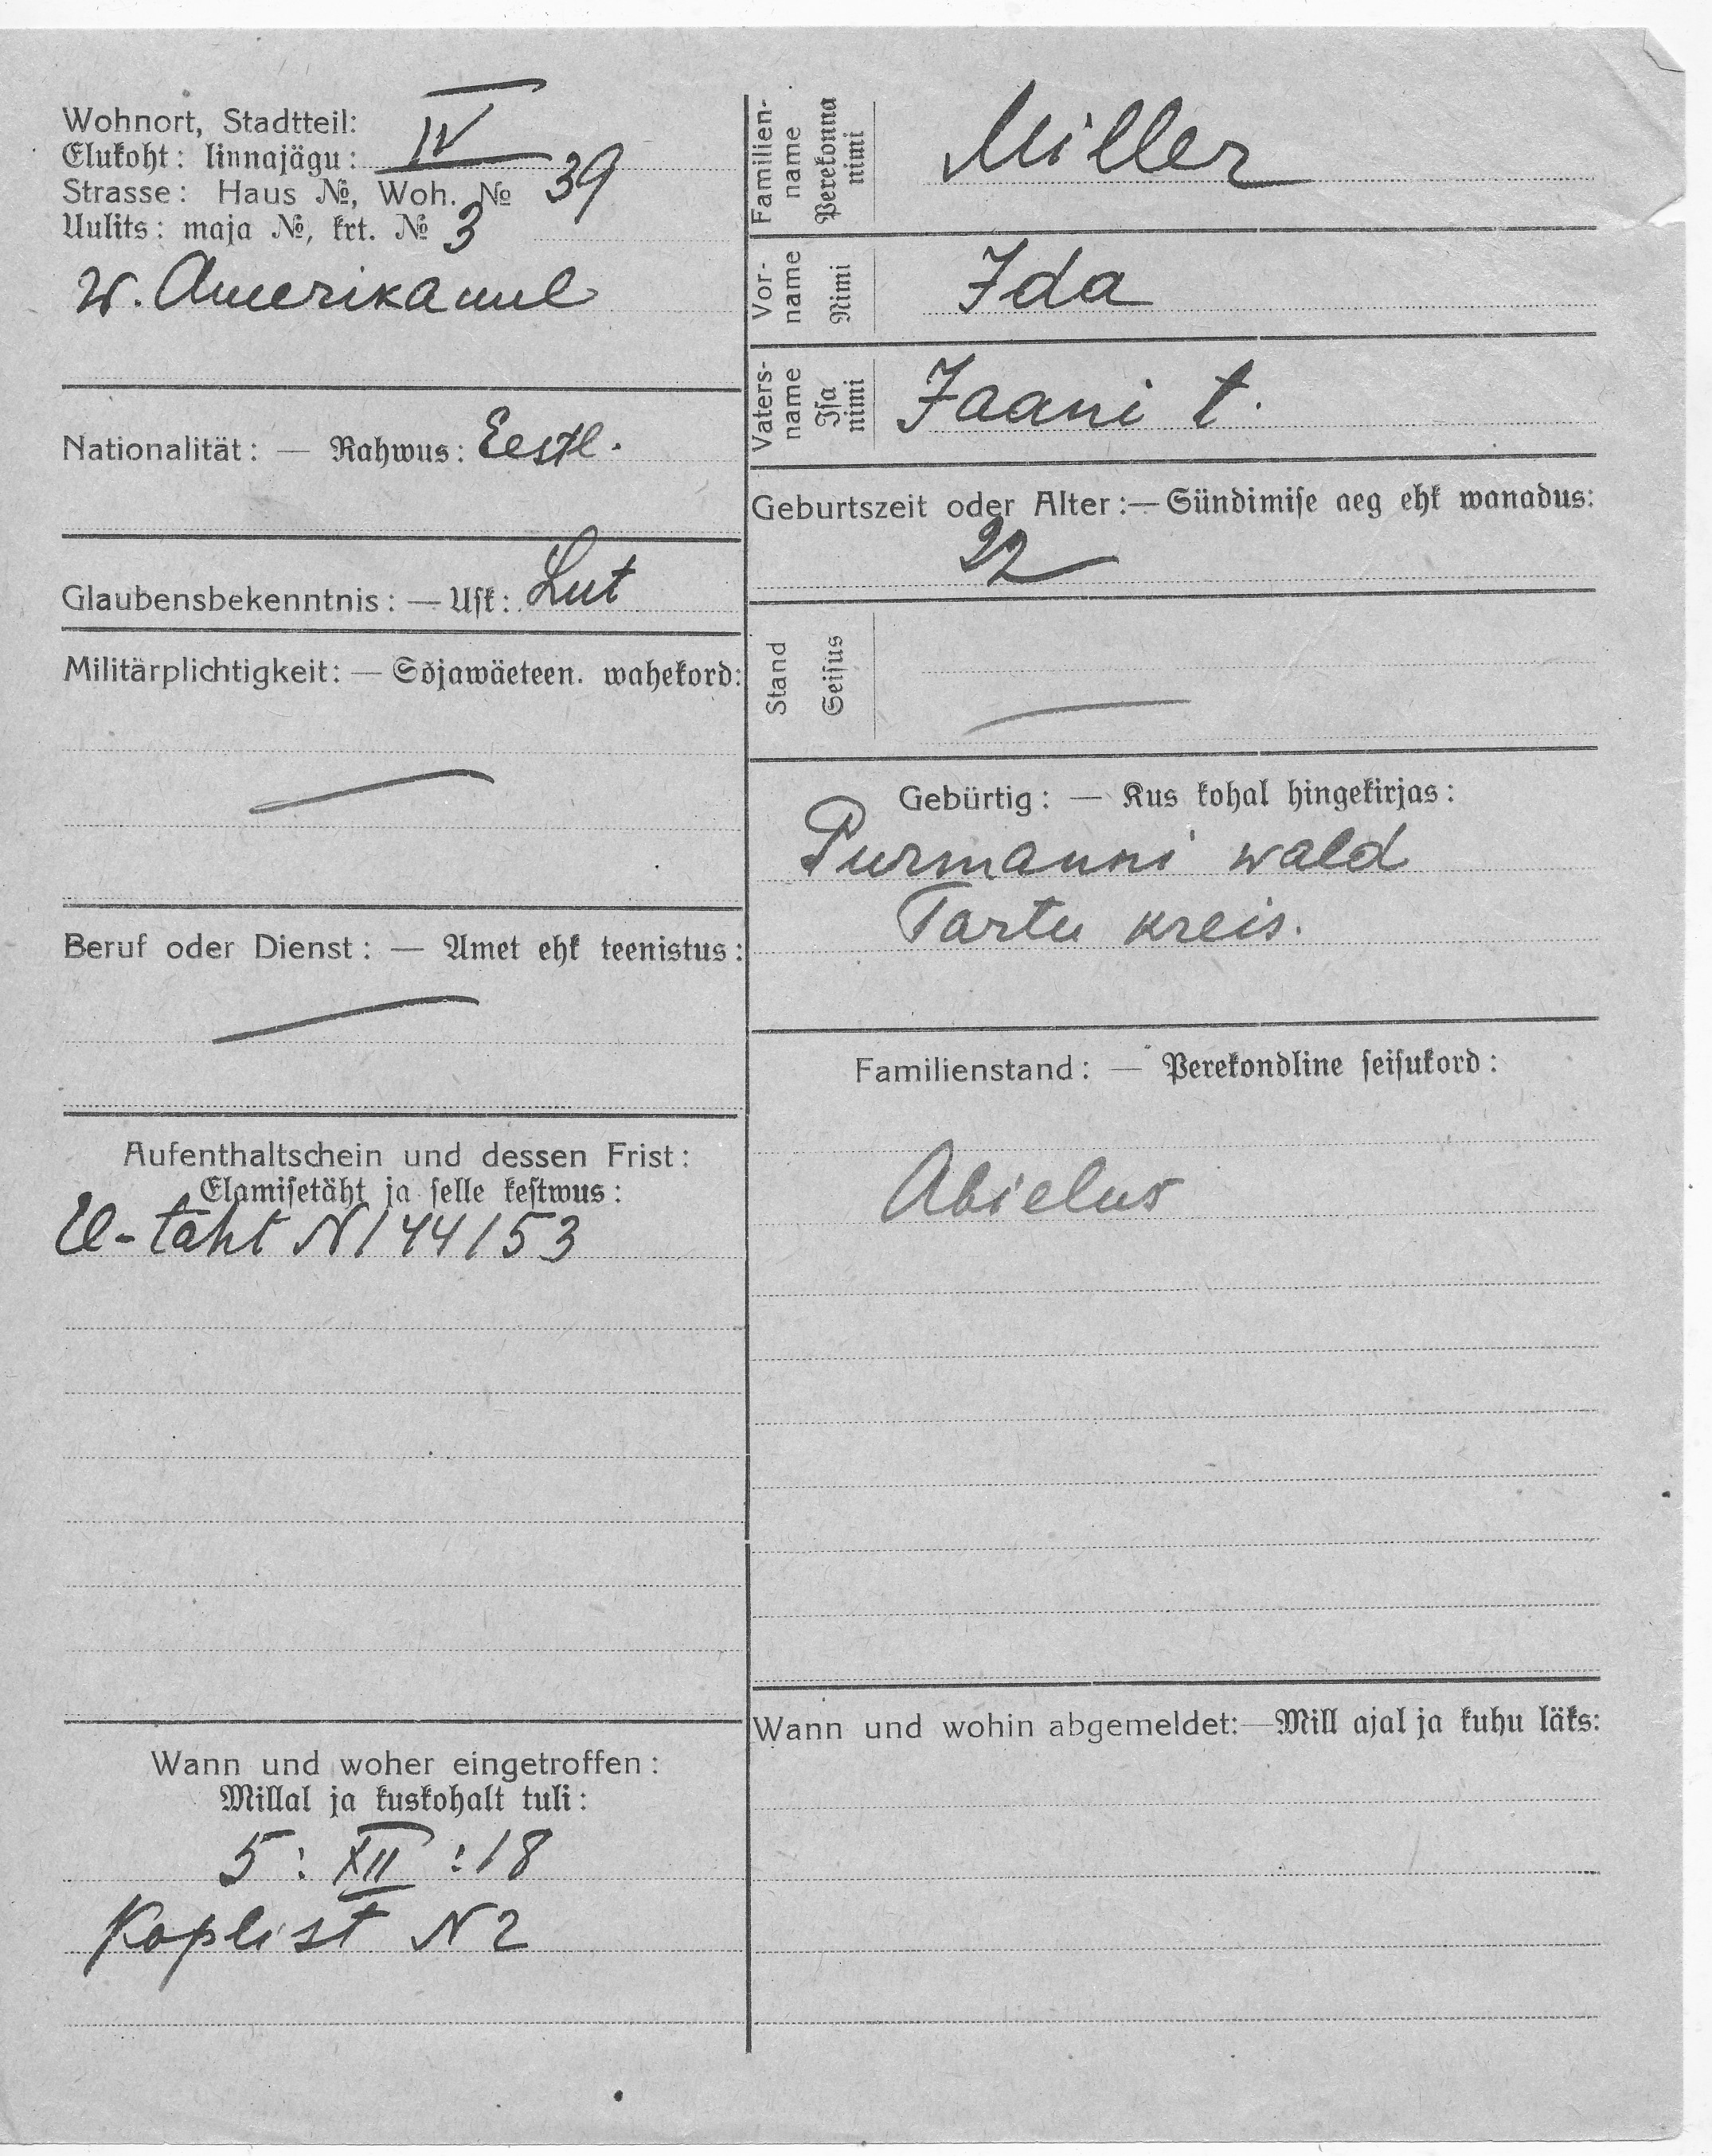 Wohnort, Stadtteil:
Elukoht: linnajägu: IV
Strasse: Haus №, Woh. № 39
Uulits: maja №, krt. № 3
W. Amerika uul
Nationalität: — Rahwus: Eestl.
Glaubensbekenntnis: — Usk: Lut
Militärplichtigkeit: — Sõjawäeteen. wahekord:
—
Beruf oder Dienst: — Amet ehk teenistus:
—
Aufenthaltschein und dessen Frist:
Elamisetäht ja selle kestwus:
El-täht N 144153
Wann und woher eingetroffen:
Millal ja kuskohalt tuli:
5: XII :18
Koplist N 2
Familien-
name
Perekonna
nimi
Miller
Vor-
name
Nimi
Ida
Vaters-
name
Isa
nimi
Jaani t.
Geburtszeit oder Alter:— Sündimise aeg ehk wanadus:
22
Stand
Seisus
—
Gebürtig: — Kus kohal hingekirjas:
Purmanni wald
Tartu kreis.
Familienstand: — Perekondline seisukord:
Abielus
Wann und wohin abgemeldet:—Mill ajal ja kuhu läks: